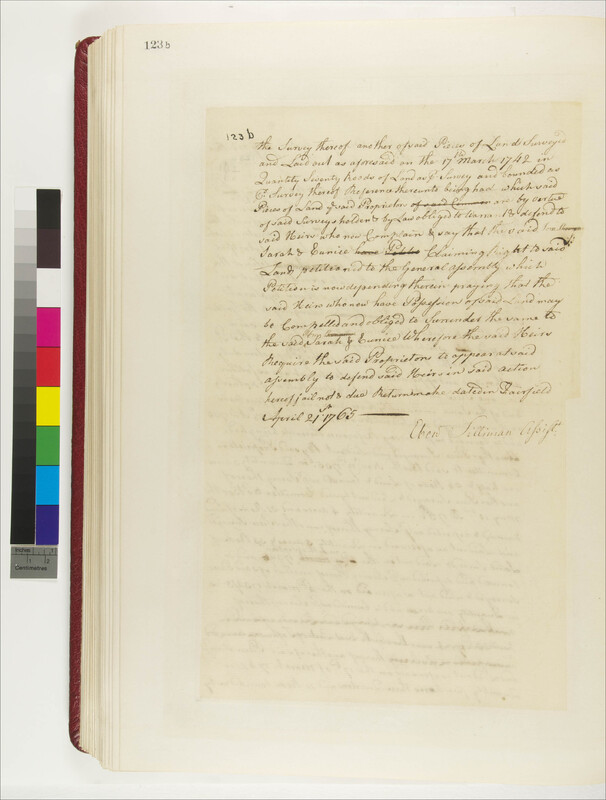 123b
123b
the Survey thereof another of said Pieces of Land Surveyed
and Laid out as aforesaid on the 17th March 1742 in
Quantity Twenty Roods of Land as pr Survey and bounded as
pr Survey thereof Reference thereunto being had which said
Pieces of Land ye said Proprietors of said Common are by vertue
of said Surveys holden & by Law obliged to warrant & defend to
said Heirs who now Complain & say that the said
Sarah & Eunice have Claiming Right to said
Land petitioned to the General assembly which
Petition is now depending therein praying that the
said Heirs who now have Possession of said Land may
be Compelled and obliged to Surrender the same to
the said Sarah & Eunice Wherefore the said Heirs
Require the said Proprietors to appear at said
assembly to defend said Heirs in said action
hereof fail not & due Return make dated in Fairfield
April 21st 1765
Ebenr Silliman Assist
Inches
1
2
Centimetres